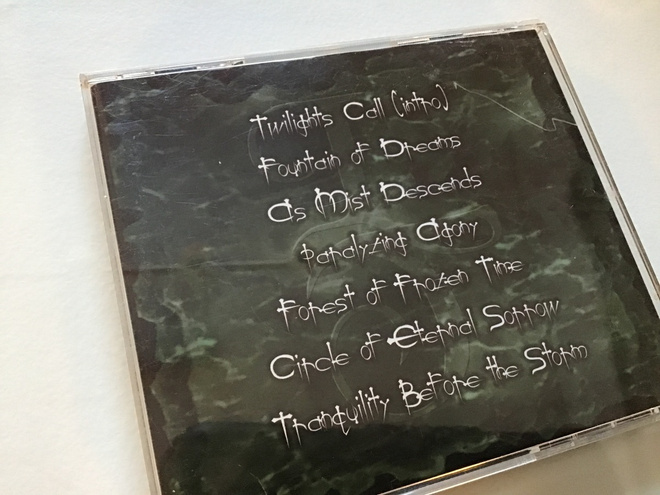 Twilights Call (intro)
Fountain of Dreams
As Mist Descends
Paralyzing Agony
Forest of Frozen Time
Circle of Eternal Sorrow
Tranquility Before the Storm